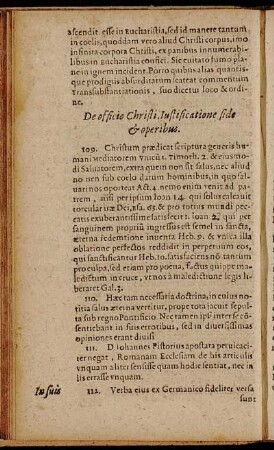 ascendit. esse in Eucharistia, sed id manere tantum
in coelis, quoddam vero aliud Christi corpus, imo
infinita corpora Christi, ex panibus innumerabi-
libus in eucharistia confici. Sic euitato fumo pla-
ne in ignem incident. Porro quibus alias quantis-
que prodigiis absurditatum scateat commentum
Transsubstantiationis, suo dicetur loco & ordi-
ne.
De officio Christi. Iustificatione fide
& operibus.
109. Christum prædicat scriptura generis hu-
mani Mediatorem vnicum. Timoth. 2. & eiusmo-
di Saluatorem, extra quem non sit salus, nec aliud
nomen sub coelo datum hominibus, in quo sal-
uari nos oporteat Act. 4. nemo enim venit ad pa-
trem, nisi per ipsum Ioan 14. qui solus calcauit
torcular iræ Dei, Esa. 63. & pro totius mundi pec-
catis exuberantissime satisfecit 1. Ioan 2. qui per
sanguinem proprium ingressus est semel in sancta,
æterna redemtione inuenta Heb. 9. & vnica illa
oblatione perfectos reddidit in perpetuum eos,
qui sanctificantur Heb. 10. satisfaciens nō tantum
pro culpa, sed eram pro poena, factus quippe ma-
ledictum in cruce, vt nos à maledictione legis li-
beraret Gal. 3.
110. Hæc tam necessaria doctrina, in cuius no-
titia salus æterna vertitur, prope tota iacuit sepul-
ta sub regno Pontificio. Nec tamen ipsi inter se cō-
sentiebant in suis erroribus, sed in diuersissimas
opiniones erant diuisi.
111. D. Iohannes Pistorius apostata peruicaci-
ter negat, Romanam Ecclesiam de his articulis
vnquam aliter sensisse quam hodie sentiat, nec in
illis errasse vnquam.
In suis 112. Verba eius ex Germanico fideliter versa
sunt